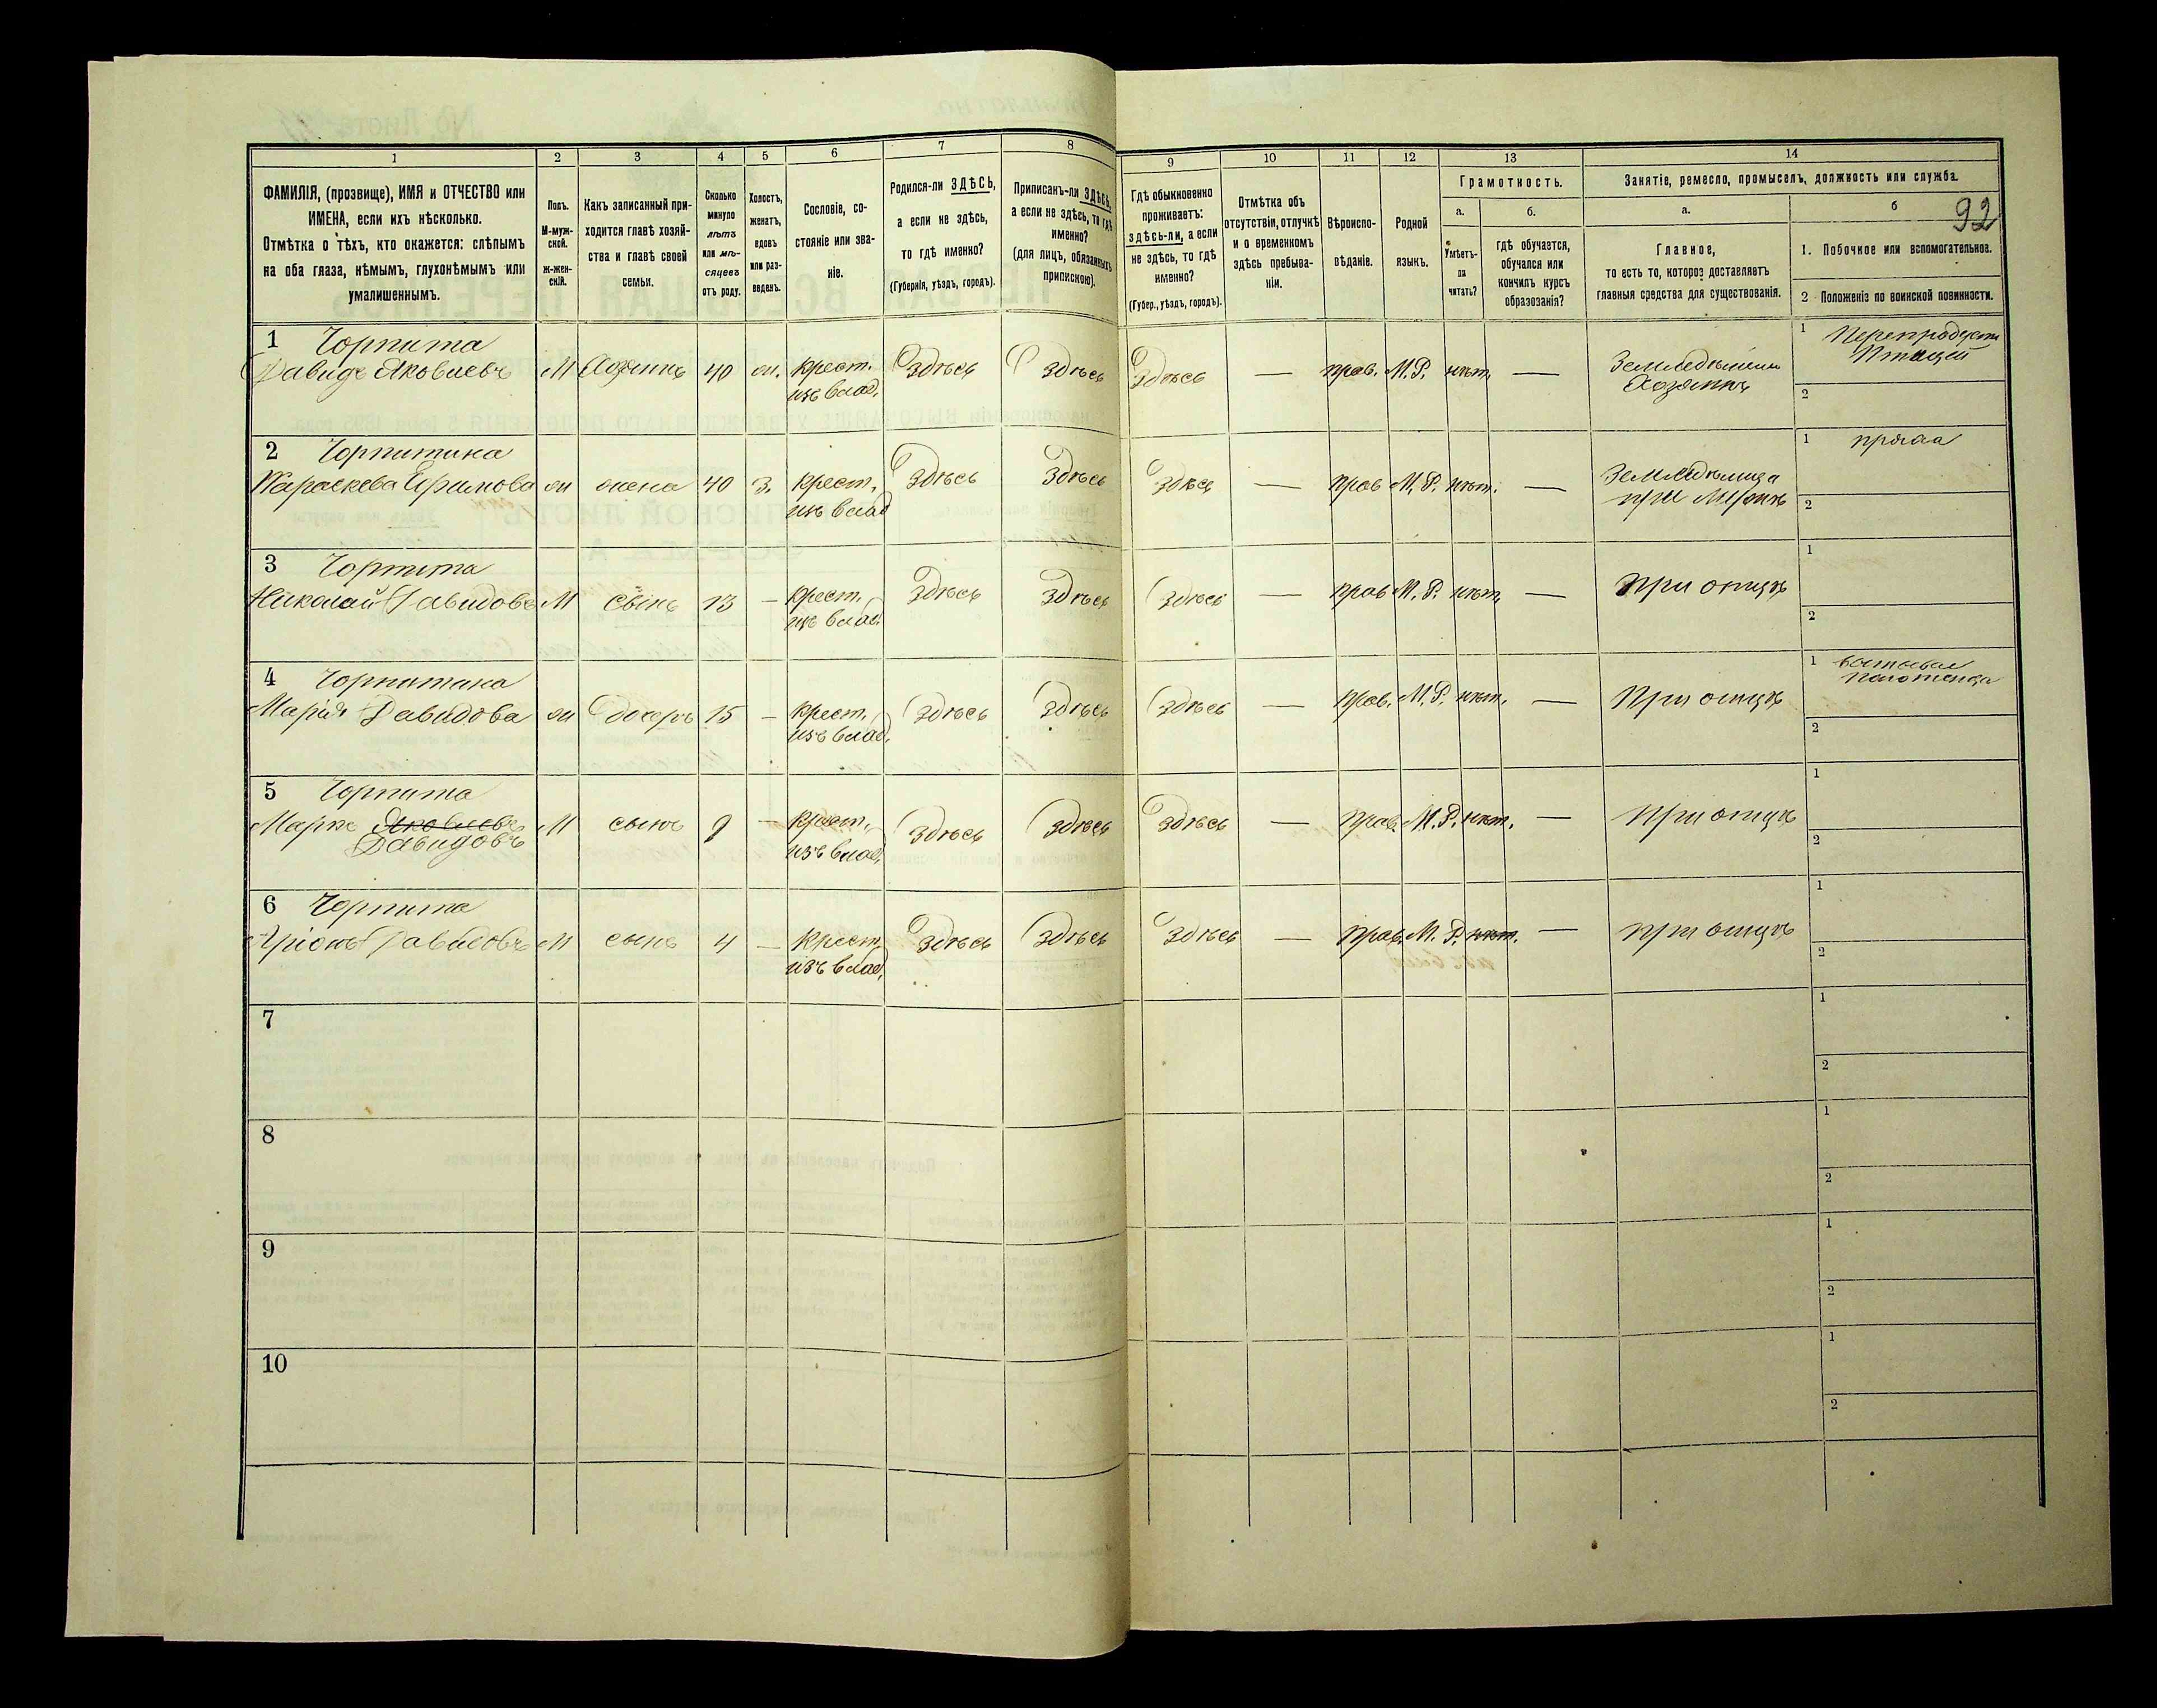 1 2 3 4 5 6 7 8 9 10 11 12 13 14
ФАМИЛІЯ, (прозвище), ИМЯ и ОТЧЕСТВО или
ИМЕНА, если ихъ нѣсколько.
Отмѣтка о тѣхъ, кто окажется: слѣпымъ
на оба глаза, нѣмымъ, глухонѣмымъ или
умалишеннымъ.
Полъ.
М-муж-
ской.
ж-жен-
скій.
Какъ записанный при-
ходится главѣ хозяй-
ства и главѣ своей
семьи.
Сколько
минуло
лѣтъ
или мѣ-
сяцевъ
отъ роду.
Холостъ,
женатъ,
вдовъ
или раз-
веденъ.
Сословіе, со-
стояніе или зва-
ніе.
Родился-ли ЗДѢСЬ,
а если не здѣсь,
то гдѣ именно?
(Губернія, уѣздъ, городъ).
Приписанъ-ли ЗДѢСЬ,
а если не здѣсь, то гдѣ
именно?
(для лицъ, обязанныхъ
припискою).
Гдѣ обыкновенно
проживаетъ:
здѣсь-ли, а если
не здѣсь, то гдѣ
именно?
(Губер., уѣздъ, городъ).
Отмѣтка объ
отсутствіи, отлучкѣ
и о временномъ
здѣсь пребыва-
ніи.
Вѣроиспо-
вѣданіе.
Родной
языкъ.
Грамотность.
а. б.
Умѣетъ-
ли
читать?
гдѣ обучается,
обучался или
кончилъ курсъ
образованія?
Занятіе, ремесло, промыселъ, должность или служба.
а. б 92
Главное,
то есть то, которое доставляетъ
главныя средства для существованія.
1. Побочное или вспомогательное.
2 Положеніе по воинской повинности.
1 Чорпита 1
Давидъ Яковлевъ М Хозяинъ 40 ж. крест. здѣсь здѣсь здѣсь — прав. М.Р. нѣт. —
изъ влад. Хозяинъ 2
2 Чорпитина 1 пряха
Параскева Ефимова ж жена 40 З. крест. здѣсь здѣсь здѣсь — прав М.Р. нѣт. —
изъ влад при мужѣ 2
3 Чорпита 1
Николай Давидовъ М сынъ 13 — крест. здѣсь здѣсь здѣсь — прав М.Р. нѣт. — при отцѣ
изъ влад. 2
4 Чорпитина 1
Марія Давидова ж дочерь 15 — крест. здѣсь здѣсь здѣсь — прав. М.Р. нѣт. — при отцѣ
изъ влад. 2
5 Чорпита 1
Марко Яковлевъ М сынъ 9 — крест. здѣсь здѣсь здѣсь — прав. М.Р. нѣт. — при отцѣ
Давидовъ изъ влад. 2
6 Чорпита 1
Давидовъ М сынъ 4 — крест. здѣсь здѣсь здѣсь — прав. М.Р. нѣт. — при отцѣ
изъ влад. 2
7 1
2
8 1
2
9 1
2
10 1
2